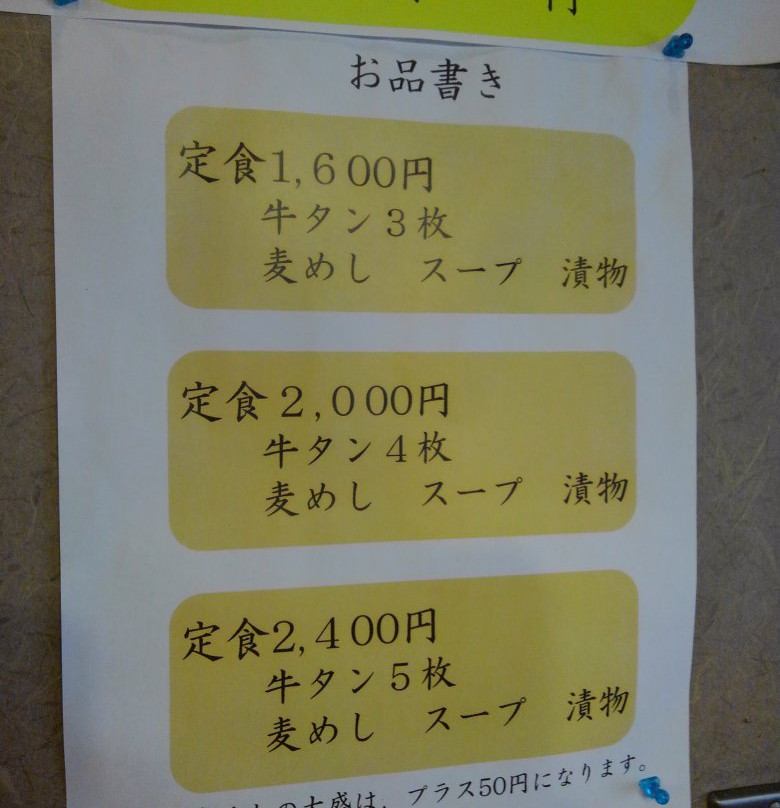 お品書き
定食1,600円
牛タン3枚
麦めし スープ 漬物
定食2,000円
牛タン4枚
麦めし スープ 漬物
定食2,400円
牛タン5枚
麦めし スープ 漬物
の大盛は、プラス50円になります。